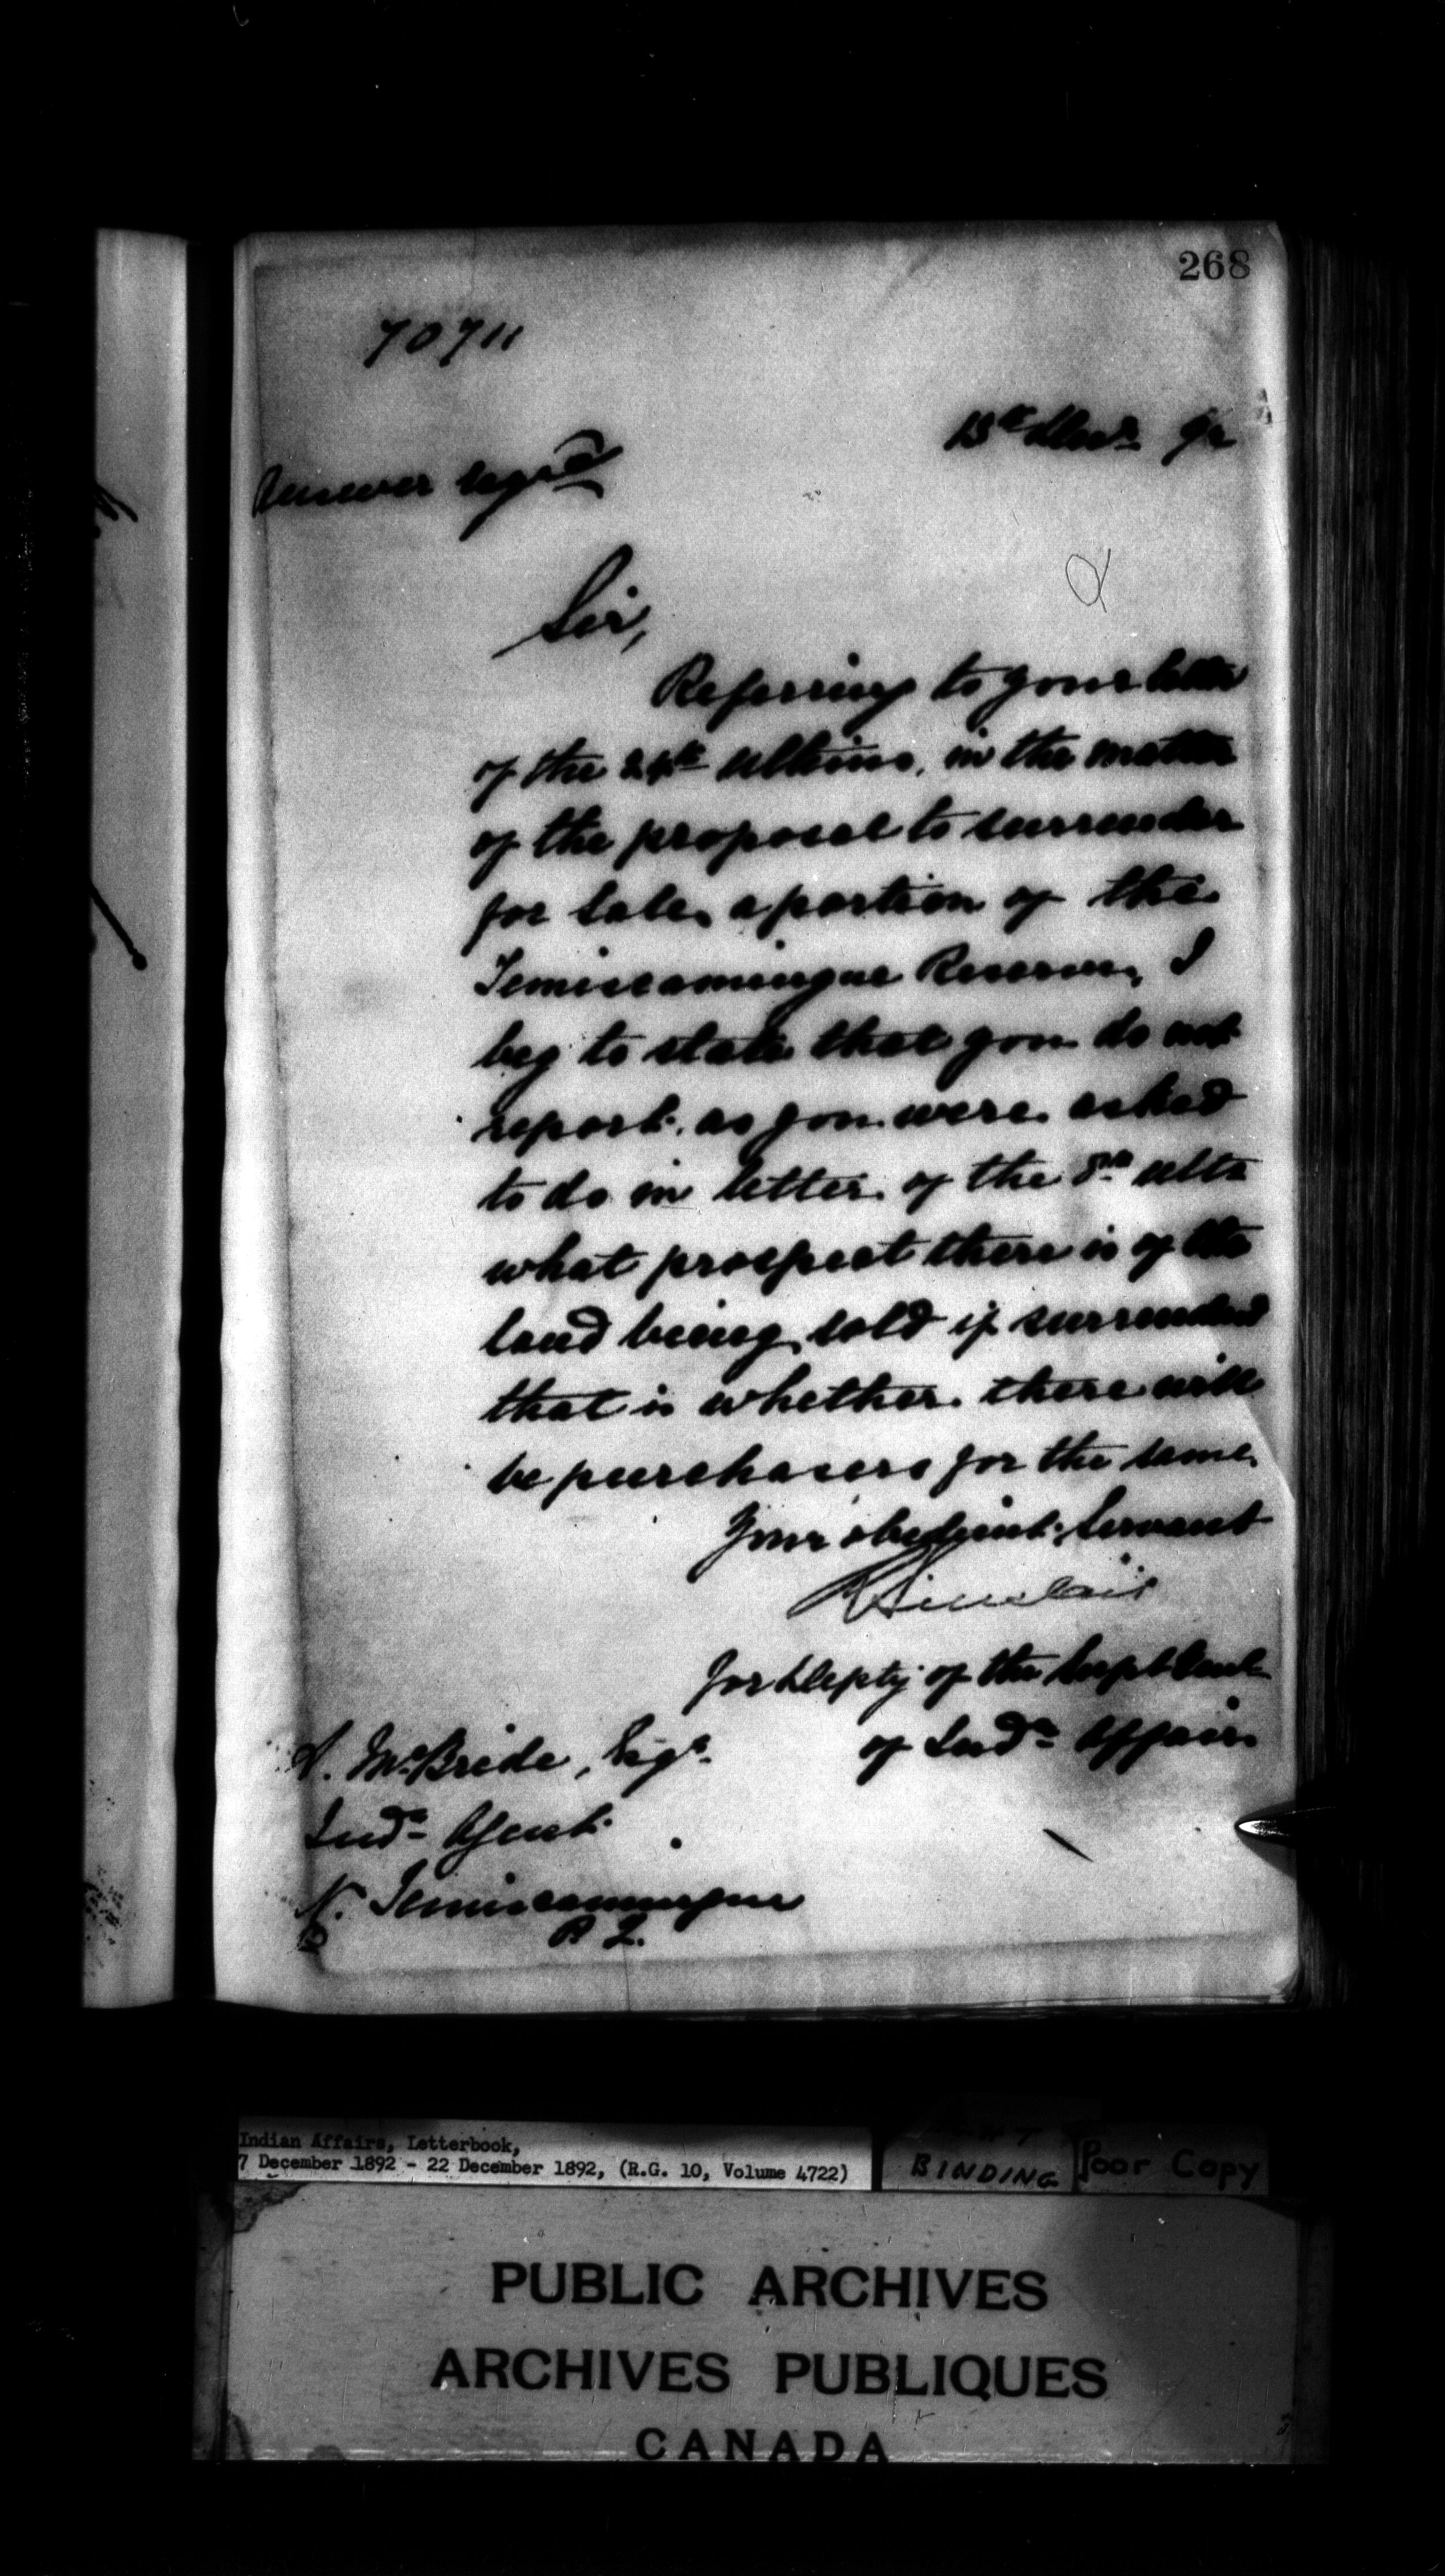 268
70711
15th Decr 92
Answer reqrd
Sir,
Referring to your letter
of the 24th ultimo, in the matter
of the proposal to surrender
for sale, a portion of the
Temiscamingue Reserve, I
beg to state that you do not
report, as you were asked
to do in letter of the 8th ulto
what prospect there is of the
land being sold if surrendered
that is whether there will
be purchasers for the same.
Your obedient Servant
R Sinclair
for Depty of the Supt Genl
of Indn Affairs
A. McBride, Esqr.
Indn Agent
N. Temiscamingue
P Q.
Indian Affairs, Letterbook,
7 December 1892 - 22 December 1892, (R.G. 10, Volume 4722)
BINDING
Poor Copy
PUBLIC ARCHIVES
ARCHIVES PUBLIQUES
CANADA